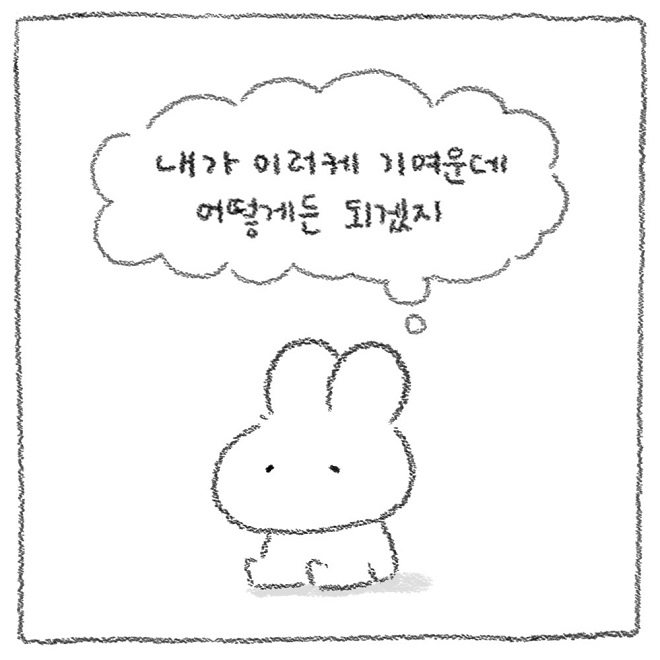 내가 이러케 기여운데
어떻게든 되겠지